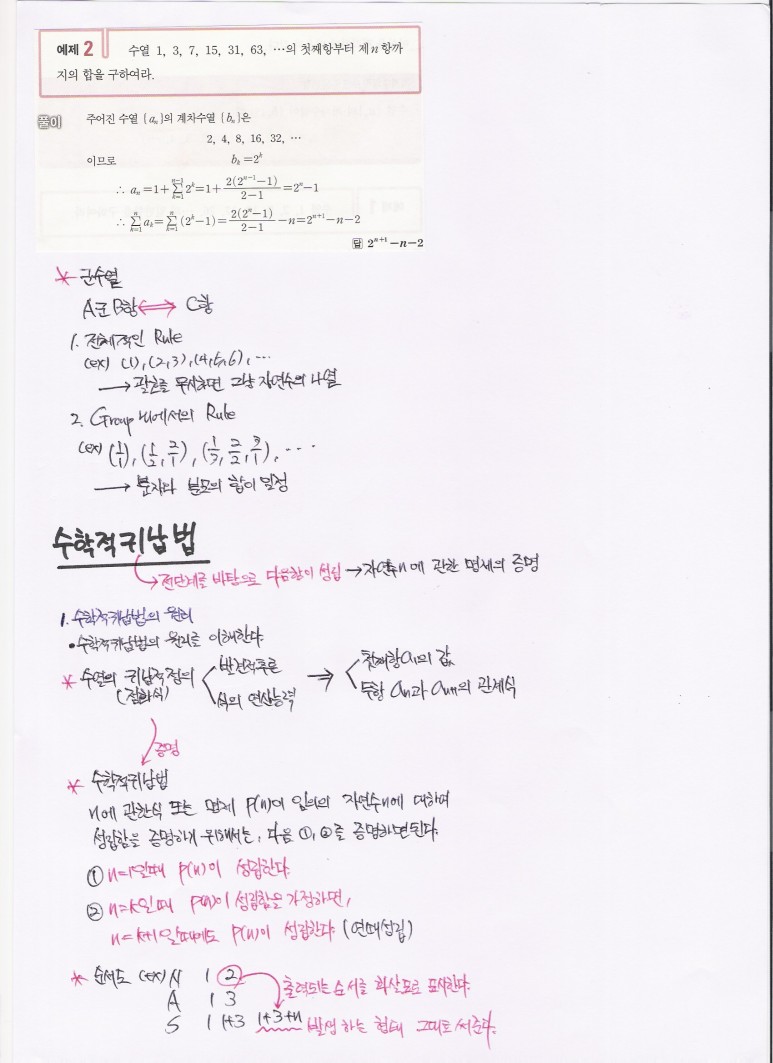 예제 2 수열 1, 3, 7, 15, 31, 63, …의 첫째항부터 제n항까
지의 합을 구하여라.
풀이 주어진 수열 {aₙ}의 계차수열 {bₙ}은
2, 4, 8, 16, 32, …
이므로 bₖ=2ᵏ
∴ aₙ=1+∑_{k=1}^{n-1} 2ᵏ=1+2(2ⁿ⁻¹-1)/(2-1)=2ⁿ-1
∴ ∑_{k=1}^{n} aₖ=∑_{k=1}^{n}(2ᵏ-1)=2(2ⁿ-1)/(2-1)-n=2ⁿ⁺¹-n-2
답 2ⁿ⁺¹-n-2
* 군수열
A군 B항 ⟷ C항
1. 전체적인 Rule
(ex) (1), (2, 3), (4, 5, 6), …
→ 괄호를 무시하면 그냥 자연수의 나열
2. Group 내에서의 Rule
(ex) (1/1), (1/2, 2/1), (1/3, 2/2, 3/1), …
→ 분자와 분모의 합이 일정
수학적 귀납법
→ 전단계를 바탕으로 다음항이 성립 → 자연수 n에 관한 명제의 증명
1. 수학적귀납법의 원리
• 수학적귀납법의 원리를 이해한다.
* 수열의 귀납적정의 < 발견적추론 → < 첫째항 a₁의 값
(점화식) 식의 연산능력 두항 aₙ과 aₙ₊₁의 관계식
증명
* 수학적귀납법
n에 관한식 또는 명제 P(n)이 임의의 자연수 n에 대하여
성립함을 증명하기 위해서는, 다음 ①, ②를 증명하면된다.
① n=1일때 P(n)이 성립한다.
② n=k일때 P(n)이 성립함을 가정하면,
n=k+1일때에도 P(n)이 성립한다. (연쇄성립)
* 순서도 (ex) N 1 2 출력되는 순서를 화살표로 표시한다.
A 1 3
S 1 1+3 1+3+n 발생하는 형태 그대로 써준다.